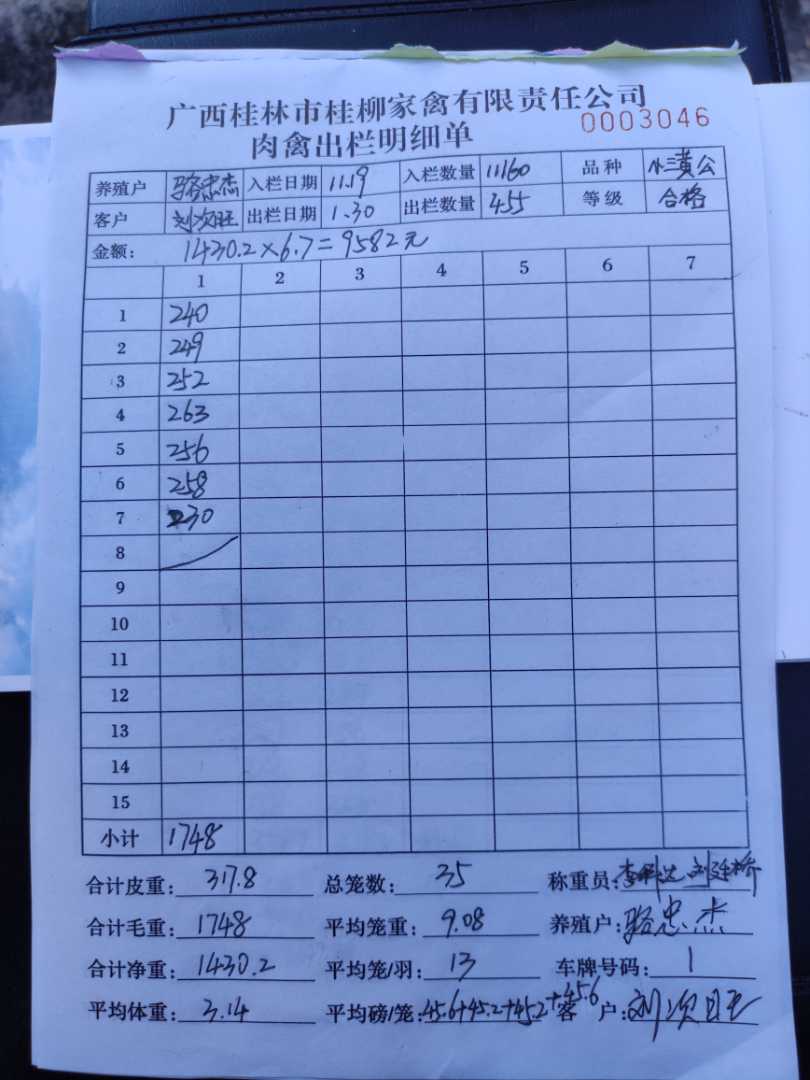 广西桂林市桂柳家禽有限责任公司
肉禽出栏明细单 0003046
养殖户 骆忠杰 入栏日期 11.19 入栏数量 11160 品种 小三黄公
客户 刘次旺 出栏日期 1.30 出栏数量 455 等级 合格
金额: 1430.2×6.7=9582元
1 2 3 4 5 6 7
1 240
2 249
3 252
4 263
5 256
6 258
7 230
8
9
10
11
12
13
14
15
小计 1748
合计皮重: 317.8 总笼数: 35 称重员:
合计毛重: 1748 平均笼重: 9.08 养殖户: 骆忠杰
合计净重: 1430.2 平均笼/羽: 13 车牌号码: 1
平均体重: 3.14 平均磅/笼: 45.6+45.2+45.2+45.6 客户: 刘次旺